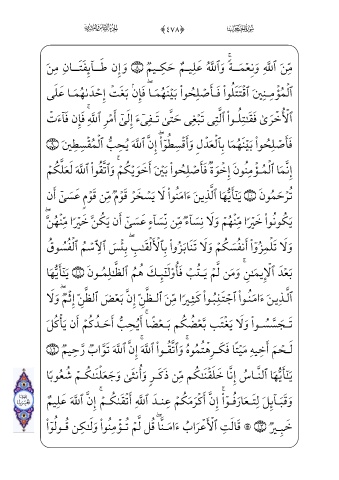 ﴿٤٧٨﴾
مِّنَ ٱللَّهِ وَنِعۡمَةٗۚ وَٱللَّهُ عَلِيمٌ حَكِيمٞ ۝ وَإِن طَآئِفَتَانِ مِنَ
ٱلۡمُؤۡمِنِينَ ٱقۡتَتَلُواْ فَأَصۡلِحُواْ بَيۡنَهُمَاۖ فَإِنۢ بَغَتۡ إِحۡدَىٰهُمَا عَلَى
ٱلۡأُخۡرَىٰ فَقَٰتِلُواْ ٱلَّتِي تَبۡغِي حَتَّىٰ تَفِيٓءَ إِلَىٰٓ أَمۡرِ ٱللَّهِۚ فَإِن فَآءَتۡ
فَأَصۡلِحُواْ بَيۡنَهُمَا بِٱلۡعَدۡلِ وَأَقۡسِطُوٓاْۖ إِنَّ ٱللَّهَ يُحِبُّ ٱلۡمُقۡسِطِينَ ۝
إِنَّمَا ٱلۡمُؤۡمِنُونَ إِخۡوَةٞ فَأَصۡلِحُواْ بَيۡنَ أَخَوَيۡكُمۡۚ وَٱتَّقُواْ ٱللَّهَ لَعَلَّكُمۡ
تُرۡحَمُونَ ۝ يَٰٓأَيُّهَا ٱلَّذِينَ ءَامَنُواْ لَا يَسۡخَرۡ قَوۡمٞ مِّن قَوۡمٍ عَسَىٰٓ أَن
يَكُونُواْ خَيۡرٗا مِّنۡهُمۡ وَلَا نِسَآءٞ مِّن نِّسَآءٍ عَسَىٰٓ أَن يَكُنَّ خَيۡرٗا مِّنۡهُنَّۖ
وَلَا تَلۡمِزُوٓاْ أَنفُسَكُمۡ وَلَا تَنَابَزُواْ بِٱلۡأَلۡقَٰبِۖ بِئۡسَ ٱلِٱسۡمُ ٱلۡفُسُوقُ
بَعۡدَ ٱلۡإِيمَٰنِۚ وَمَن لَّمۡ يَتُبۡ فَأُوْلَٰٓئِكَ هُمُ ٱلظَّٰلِمُونَ ۝ يَٰٓأَيُّهَا
ٱلَّذِينَ ءَامَنُواْ ٱجۡتَنِبُواْ كَثِيرٗا مِّنَ ٱلظَّنِّ إِنَّ بَعۡضَ ٱلظَّنِّ إِثۡمٞۖ وَلَا
تَجَسَّسُواْ وَلَا يَغۡتَب بَّعۡضُكُم بَعۡضًاۚ أَيُحِبُّ أَحَدُكُمۡ أَن يَأۡكُلَ
لَحۡمَ أَخِيهِ مَيۡتٗا فَكَرِهۡتُمُوهُۚ وَٱتَّقُواْ ٱللَّهَۚ إِنَّ ٱللَّهَ تَوَّابٞ رَّحِيمٞ ۝
يَٰٓأَيُّهَا ٱلنَّاسُ إِنَّا خَلَقۡنَٰكُم مِّن ذَكَرٖ وَأُنثَىٰ وَجَعَلۡنَٰكُمۡ شُعُوبٗا
وَقَبَآئِلَ لِتَعَارَفُوٓاْۚ إِنَّ أَكۡرَمَكُمۡ عِندَ ٱللَّهِ أَتۡقَىٰكُمۡۚ إِنَّ ٱللَّهَ عَلِيمٌ
خَبِيرٞ ۝ ۞ قَالَتِ ٱلۡأَعۡرَابُ ءَامَنَّاۖ قُل لَّمۡ تُؤۡمِنُواْ وَلَٰكِن قُولُوٓاْ